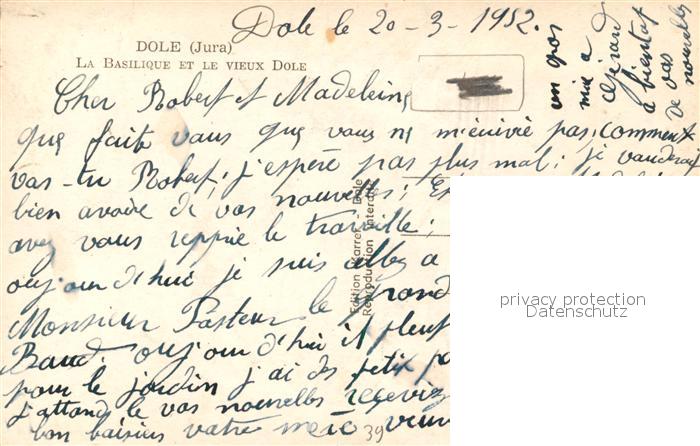 Dole le 20-3-1952.
DOLE (Jura)
LA BASILIQUE ET LE VIEUX DOLE
Cher Robert et Madeleine
que faite vous que vous ne m'écrivié pas, comment
vas-tu Robert; j'espère pas plus mal; je vauderai
bien avoire de vos nouvelles; Et
avez vous repprie le travaille;
oujourd'hui je suis allez a
Monsieur Pasteur le grand
Baud. oujourd'hui il pleut
pour le jardin j'ai des petit po
j'attends le vos nouvelles recevez
bon baisers votre mère
un gros
mie a
Gérard
a bientot
de vos
nouvelles
Edition Karrer - Dole
Reproduction interdite
privacy protection
Datenschutz
39